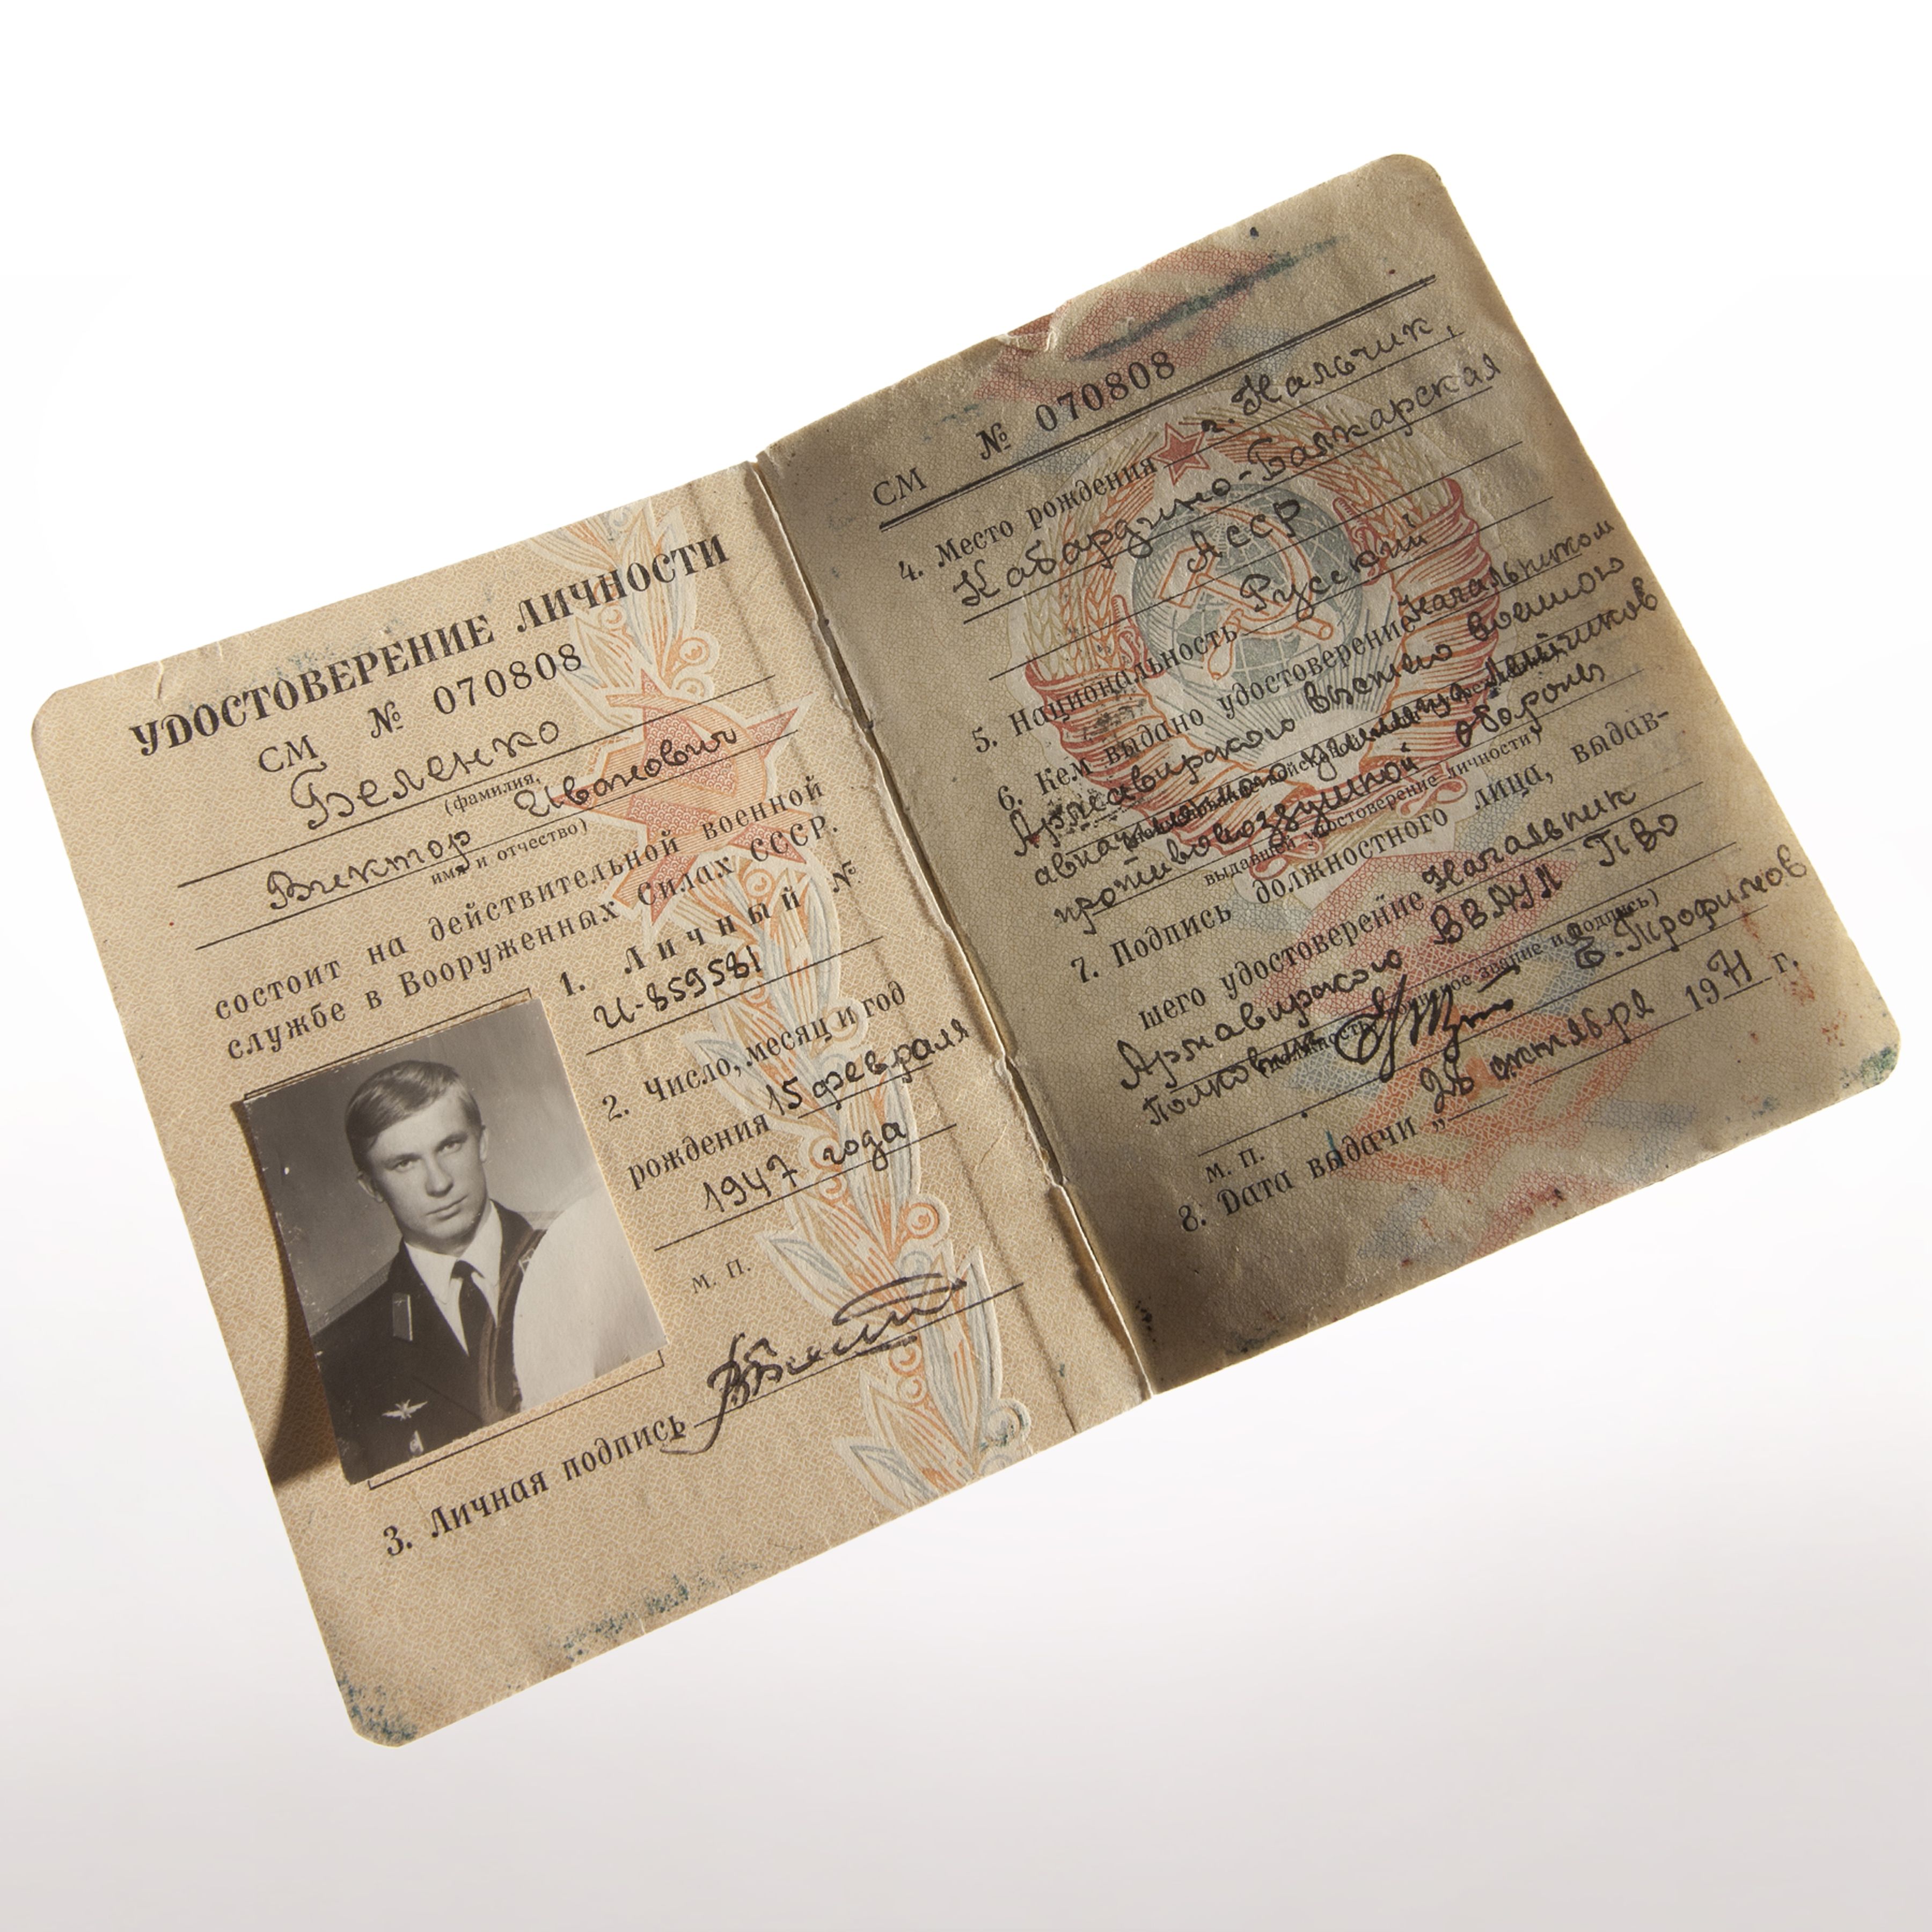 УДОСТОВЕРЕНИЕ ЛИЧНОСТИ
СМ № 070808
Беленко
(фамилия,
Виктор Иванович
имя и отчество)
состоит на действительной военной
службе в Вооруженных Силах СССР.
1. Личный №
И-859581
2. Число, месяц и год
рождения 15 февраля
1947 года
М. П.
3. Личная подпись
СМ № 070808
4. Место рождения г. Нальчик,
Кабардино-Балкарская
АССР
5. Национальность Русский
6. Кем выдано удостоверение Начальником
Армавирского высшего военного
авиационного училища лётчиков
противовоздушной обороны
выдавшей удостоверение личности)
7. Подпись должностного лица, выдав-
шего удостоверение Начальник
Армавирского ВВАУЛ ПВО
(должность, воинское звание и подпись)
полковник Е. Трофимов
М. П.
8. Дата выдачи „28 октября 1971 г.